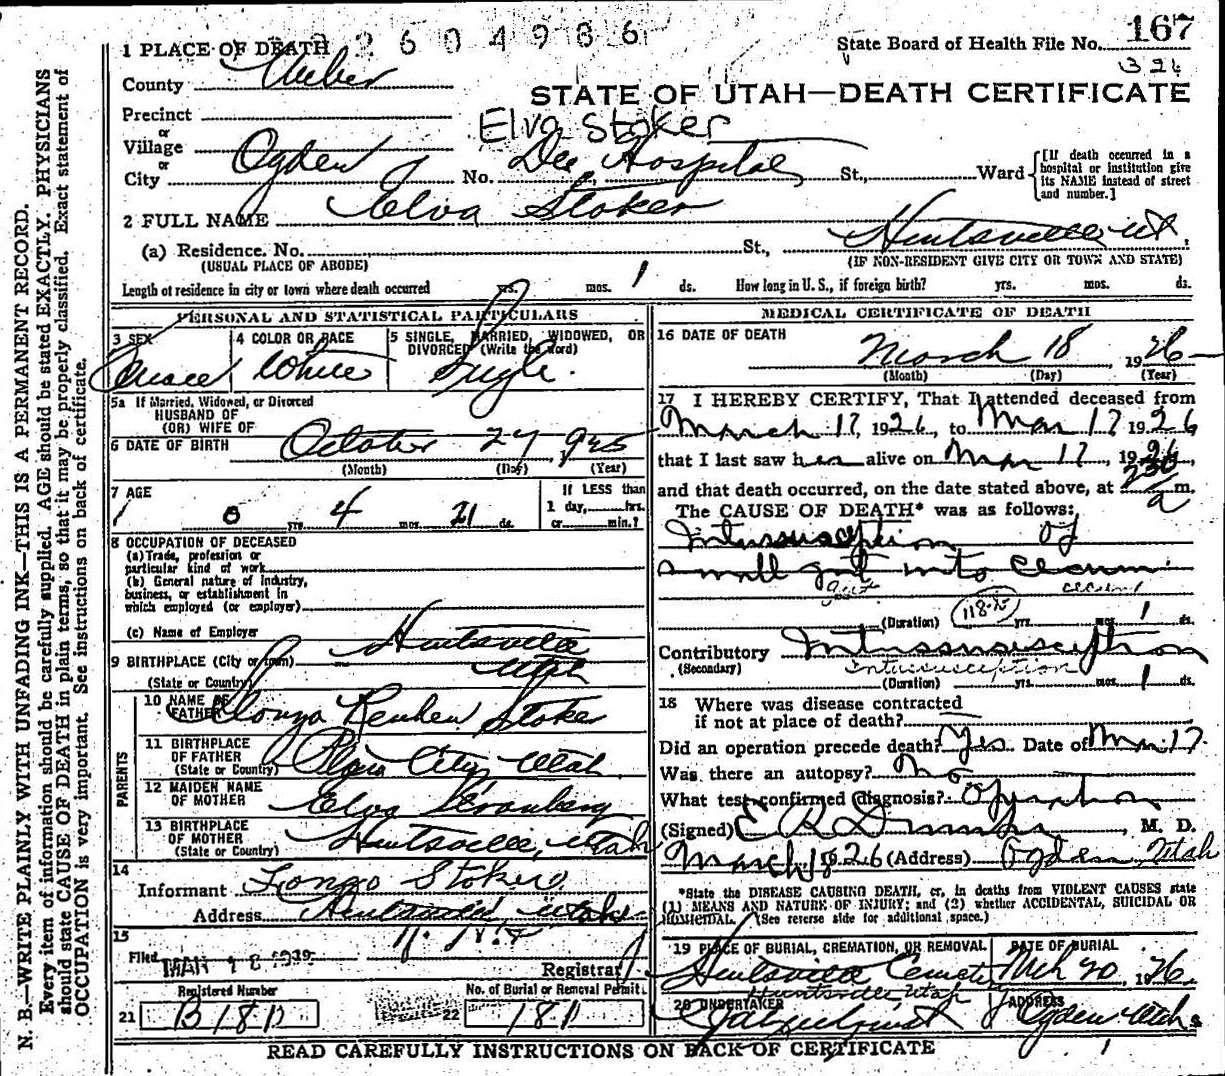 2604986
State Board of Health File No. 167
326
1 PLACE OF DEATH
County Weber
STATE OF UTAH—DEATH CERTIFICATE
Precinct
or
Elva Stoker
Village
or
City Ogden No. Dee Hospital St., Ward
[If death occurred in a hospital or institution give its NAME instead of street and number.]
2 FULL NAME Elva Stoker
(a) Residence. No. St., Huntsville Ut.
(USUAL PLACE OF ABODE) (IF NON-RESIDENT GIVE CITY OR TOWN AND STATE)
Length of residence in city or town where death occurred yrs. mos. 1 ds. How long in U. S., if foreign birth? yrs. mos. ds.
PERSONAL AND STATISTICAL PARTICULARS
3 SEX
4 COLOR OR RACE White
5 SINGLE, MARRIED, WIDOWED, OR DIVORCED (Write the word) Single.
5a If Married, Widowed, or Divorced
HUSBAND OF
(OR) WIFE OF
6 DATE OF BIRTH October 27 1925
(Month) (Day) (Year)
7 AGE 0 yrs. 4 mos. 21 ds.
If LESS than 1 day, hrs. or min.?
8 OCCUPATION OF DECEASED
(a) Trade, profession or
particular kind of work
(b) General nature of industry,
business, or establishment in
which employed (or employer)
(c) Name of Employer
9 BIRTHPLACE (City or town) Huntsville
(State or Country) Utah
PARENTS
10 NAME OF FATHER Alonzo Reuben Stoker
11 BIRTHPLACE OF FATHER (State or Country) Plain City, Utah.
12 MAIDEN NAME OF MOTHER Elva
13 BIRTHPLACE OF MOTHER (State or Country) Huntsville, Utah
14
Informant Lonzo Stoker
Address Huntsville, Utah
15
Filed MAR 18
Registrar
Registered Number No. of Burial or Removal Permit.
21 B181 22 181
MEDICAL CERTIFICATE OF DEATH
16 DATE OF DEATH
March 18, 1926
(Month) (Day) (Year)
17 I HEREBY CERTIFY, That I attended deceased from
March 17, 1926, to Mar 17 1926
that I last saw her alive on Mar 17, 1926,
and that death occurred, on the date stated above, at 230 a m.
The CAUSE OF DEATH* was as follows:
Intussusception of
small gut into cecum.
gut cecum
118-2
(Duration) yrs. mos. 1 ds.
Contributory Intussusception
(Secondary) Intussusception
(Duration) yrs. mos. 1 ds.
18 Where was disease contracted
if not at place of death?
Did an operation precede death? Yes. Date of Mar 17.
Was there an autopsy? No
What test confirmed diagnosis? Operation
(Signed) E R , M. D.
March 18 26 (Address) Ogden, Utah
*State the DISEASE CAUSING DEATH, or, in deaths from VIOLENT CAUSES state
(1) MEANS AND NATURE OF INJURY; and (2) whether ACCIDENTAL, SUICIDAL OR
HOMICIDAL. (See reverse side for additional space.)
19 PLACE OF BURIAL, CREMATION, OR REMOVAL DATE OF BURIAL
Huntsville Cemetery Mch 20, 1926.
Huntsville, Utah
20 UNDERTAKER ADDRESS
Ogden Utah
READ CAREFULLY INSTRUCTIONS ON BACK OF CERTIFICATE
N. B.—WRITE PLAINLY WITH UNFADING INK—THIS IS A PERMANENT RECORD.
Every item of information should be carefully supplied. AGE should be stated EXACTLY. PHYSICIANS
should state CAUSE OF DEATH in plain terms, so that it may be properly classified. Exact statement of
OCCUPATION is very important. See instructions on back of certificate.